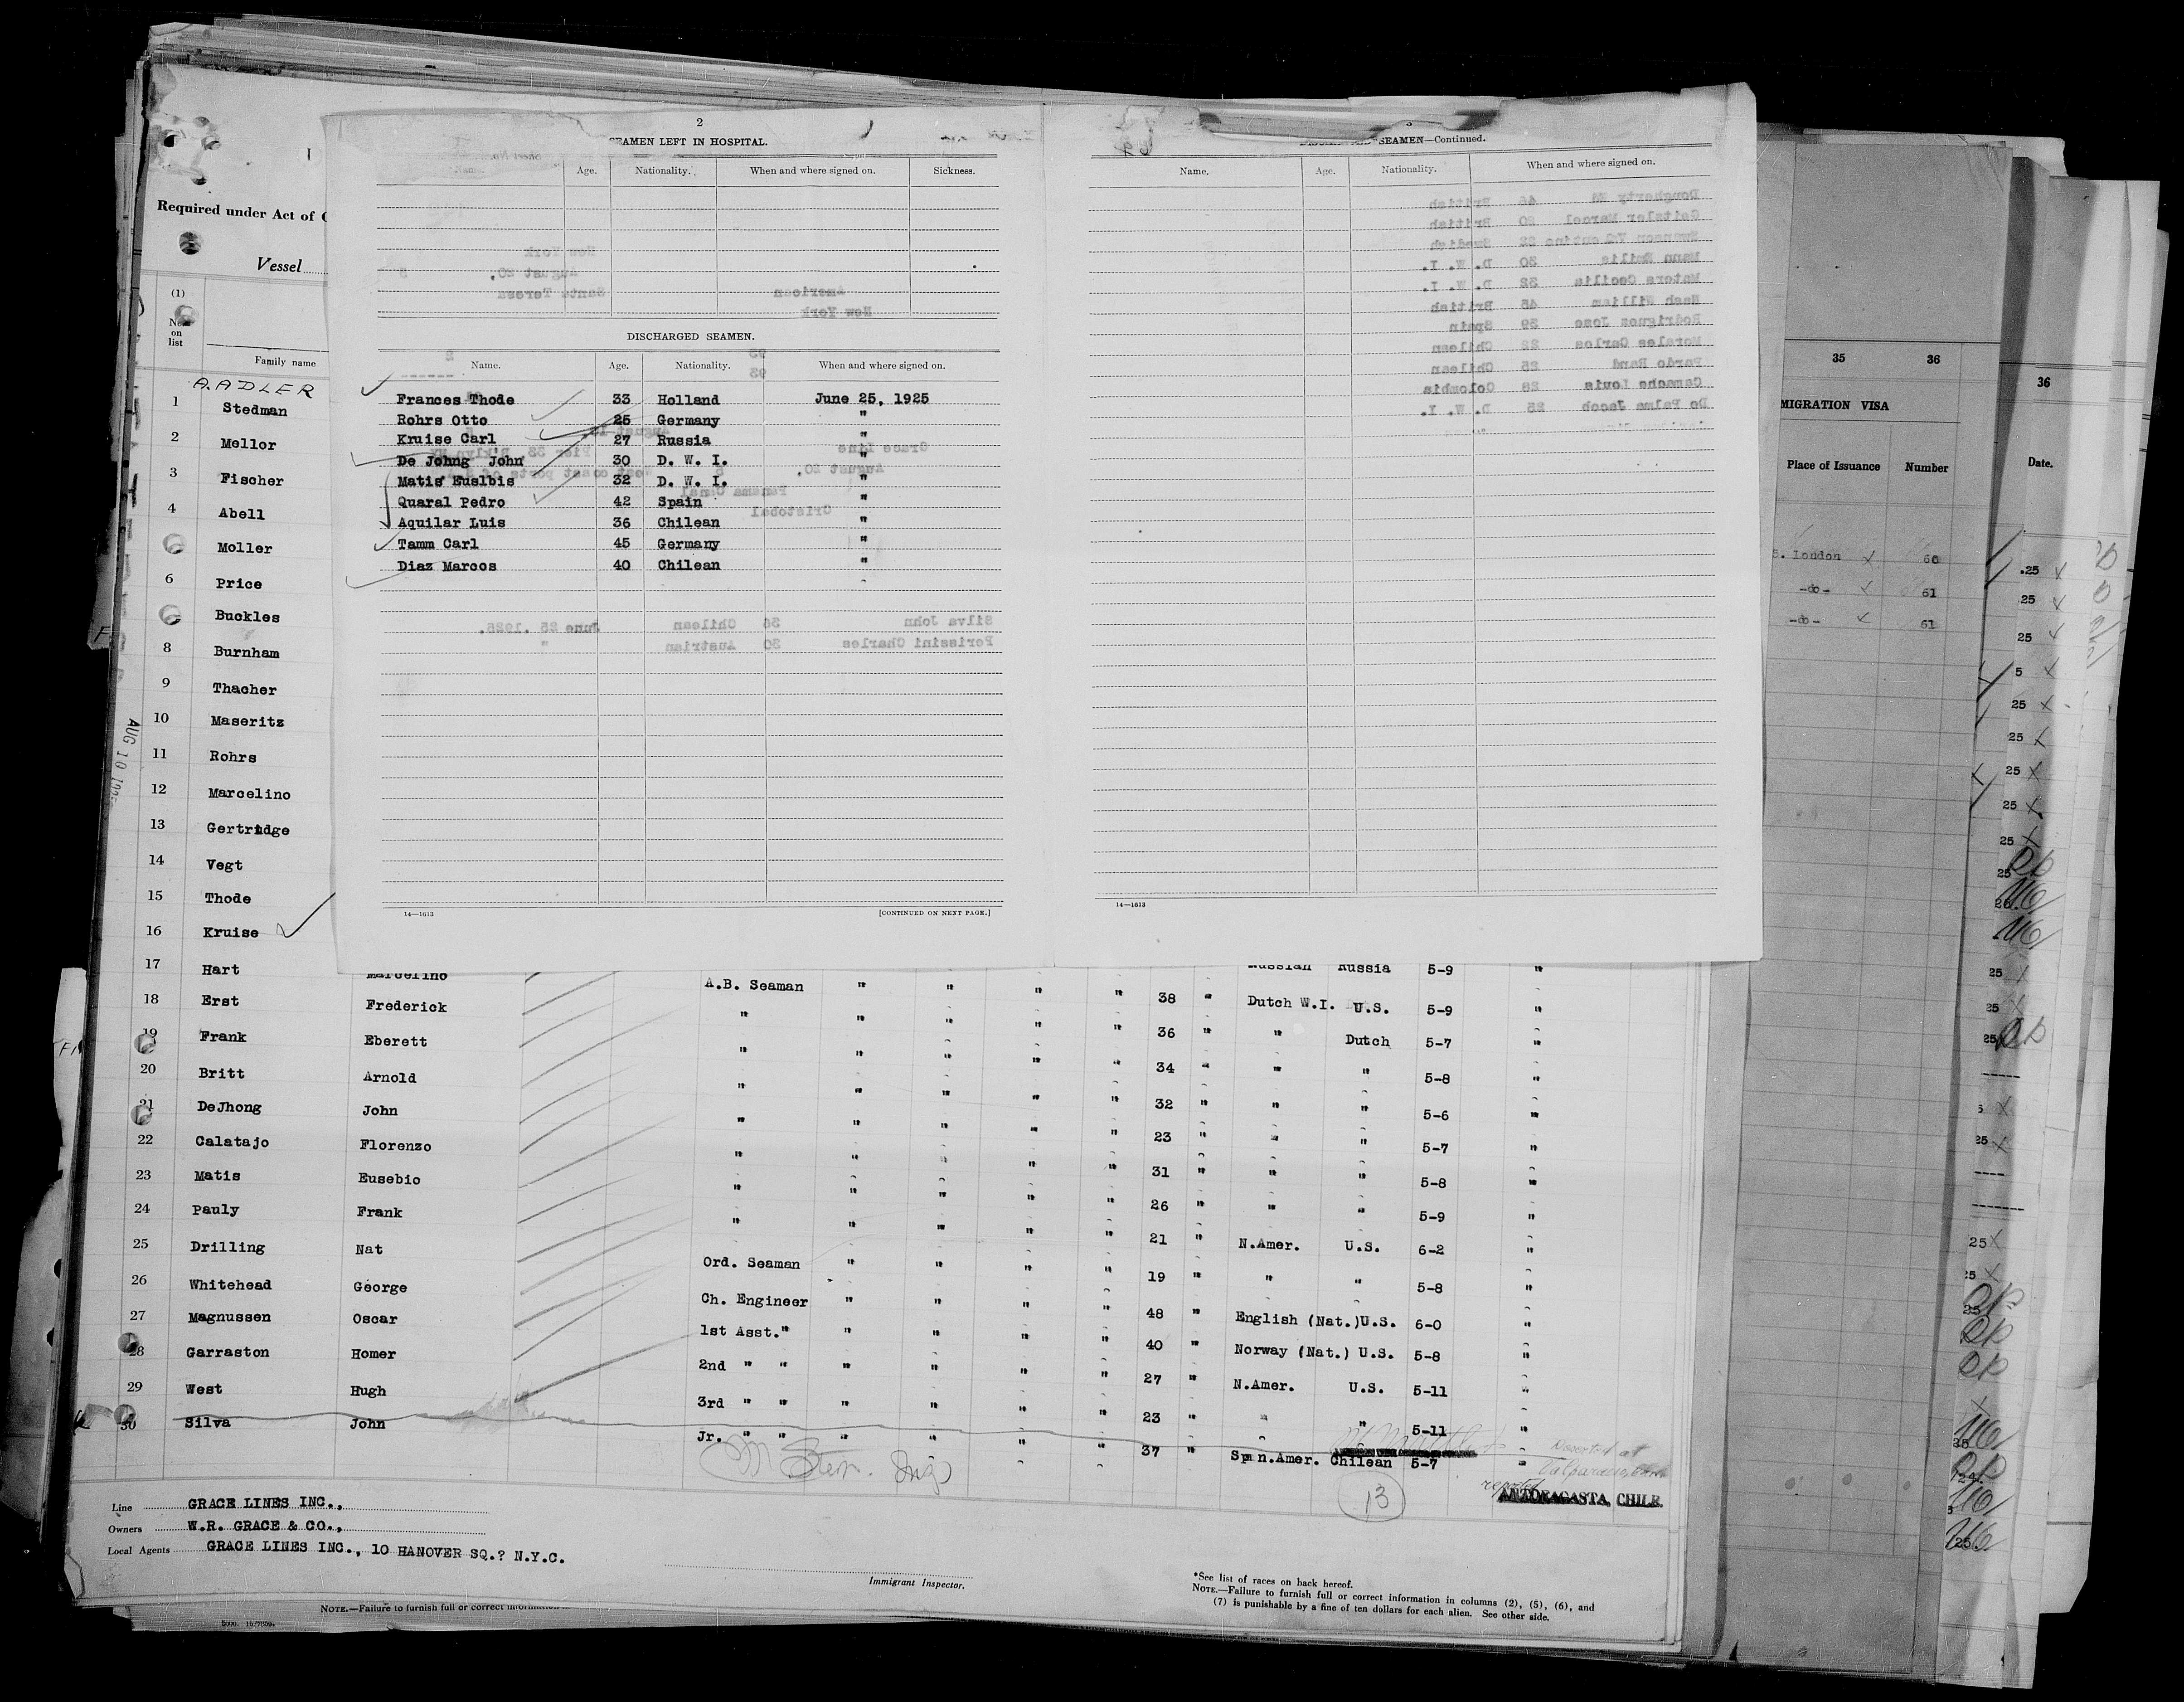 2
SEAMEN LEFT IN HOSPITAL.
Age. Nationality. When and where signed on. Sickness.
DISCHARGED SEAMEN.
Name. Age. Nationality. When and where signed on.
Frances Thode 33 Holland June 25, 1925
Rohrs Otto 25 Germany "
Kruise Carl 27 Russia "
De Johng John 30 D. W. I. "
Matis Euslbis 32 D. W. I. "
Quaral Pedro 42 Spain "
Aquilar Luis 36 Chilean "
Tamm Carl 45 Germany "
Diaz Marcos 40 Chilean "
14—1613 [CONTINUED ON NEXT PAGE.]
SEAMEN—Continued.
Name. Age. Nationality. When and where signed on.
14—1613
Required under Act of
Vessel
(1)
No. on list
Family name
A. ADLER
1 Stedman
2 Mellor
3 Fischer
4 Abell
Moller
6 Price
Buckles
8 Burnham
9 Thacher
10 Maseritz
11 Rohrs
12 Marcelino
13 Gertridge
14 Vegt
15 Thode
16 Kruise
AUG 10
Russian Russia 5-9 "
17 Hart Marcelino A.B. Seaman " " " " 38 " Dutch W.I. U.S. 5-9 "
18 Erst Frederick " " " " " 36 " " Dutch 5-7 "
19 Frank Eberett " " " " " 34 " " " 5-8 "
20 Britt Arnold " " " " " 32 " " " 5-6 "
21 DeJhong John " " " " " 23 " " " 5-7 "
22 Calatajo Florenzo " " " " " 31 " " " 5-8 "
23 Matis Eusebio " " " " " 26 " " " 5-9 "
24 Pauly Frank " " " " " 21 " N.Amer. U.S. 6-2 "
25 Drilling Nat Ord. Seaman " " " " 19 " " " 5-8 "
26 Whitehead George Ch. Engineer " " " " 48 " English (Nat.)U.S. 6-0 "
27 Magnussen Oscar 1st Asst." " " " " 40 " Norway (Nat.) U.S. 5-8 "
28 Garraston Homer 2nd " " " " " " 27 " N.Amer. U.S. 5-11 "
29 West Hugh 3rd " " " " " " 23 " " " 5-11 "
30 Silva John Jr. " " " " " " 37 " Span.Amer. Chilean 5-7 "
Deserted at
Valparaiso, Chile
reported
ANTOFAGASTA, CHILE.
13
Line GRACE LINES INC.,
Owners W.R. GRACE & CO.,
Local Agents GRACE LINES INC., 10 HANOVER SQ.? N.Y.C.
Immigrant Inspector.
*See list of races on back hereof.
NOTE.—Failure to furnish full or correct information in columns (2), (5), (6), and
(7) is punishable by a fine of ten dollars for each alien. See other side.
NOTE.—Failure to furnish full or correct
35 36
MIGRATION VISA
Place of Issuance Number
London 60
-do- 61
-do- 61
36
Date.
.25
25
25
5
25
25
25
25
25
25
25
25
25
25
25
25